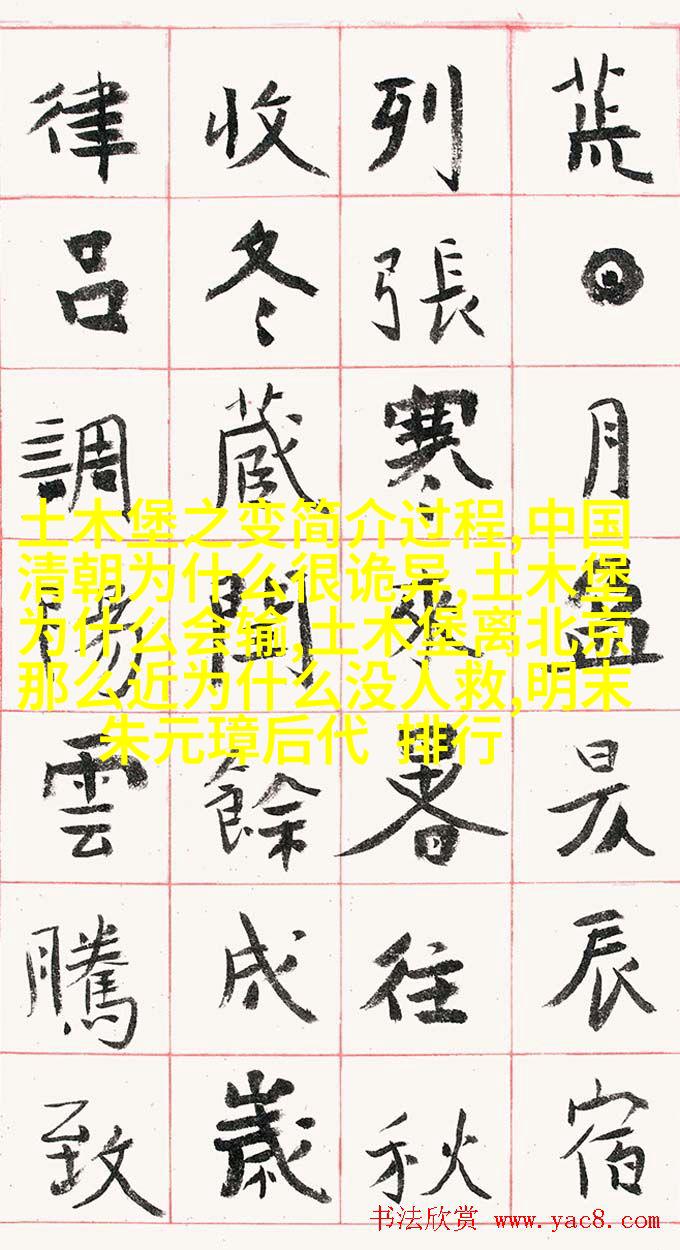 荒日月盈昃辰宿
列張寒來暑往秋
收冬藏閏餘成歲
律呂調陽雲騰致
土木堡之变简介过程,中国
清朝为什么很诡异,土木堡
为什么会输,土木堡离北京
那么近为什么没人救,明末
朱元璋后代 排行
书法欣赏 www.yac8.com